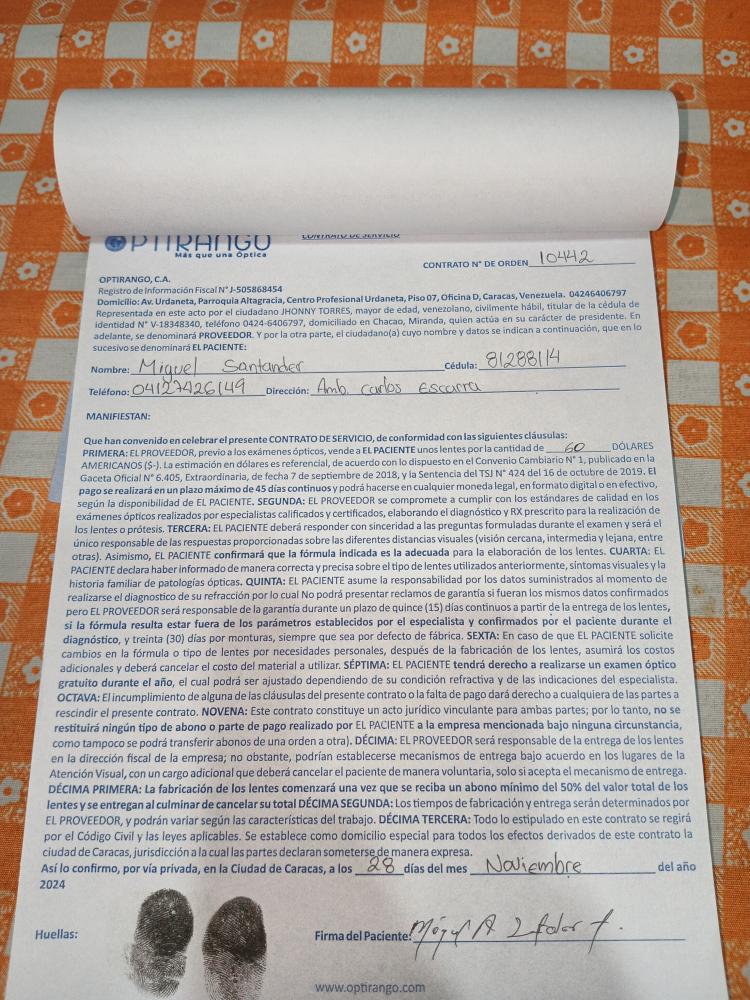 OPTIRANGO
CONTRATO DE SERVICIO
Más que una Óptica
CONTRATO N° DE ORDEN 10442
OPTIRANGO, C.A.
Registro de Información Fiscal N° J-505868454
Domicilio: Av. Urdaneta, Parroquia Altagracia, Centro Profesional Urdaneta, Piso 07, Oficina D, Caracas, Venezuela. 04246406797
Representada en este acto por el ciudadano JHONNY TORRES, mayor de edad, venezolano, civilmente hábil, titular de la cédula de
identidad N° V-18348340, teléfono 0424-6406797, domiciliado en Chacao, Miranda, quien actúa en su carácter de presidente. En
adelante, se denominará PROVEEDOR. Y por la otra parte, el ciudadano(a) cuyo nombre y datos se indican a continuación, que en lo
sucesivo se denominará EL PACIENTE:
Nombre: Miguel Santander Cédula: 81288114
Teléfono: 04127426149 Dirección: Amb. Carlos Escarra
MANIFIESTAN:
Que han convenido en celebrar el presente CONTRATO DE SERVICIO, de conformidad con las siguientes cláusulas:
PRIMERA: EL PROVEEDOR, previo a los exámenes ópticos, vende a EL PACIENTE unos lentes por la cantidad de 60 DÓLARES
AMERICANOS ($-). La estimación en dólares es referencial, de acuerdo con lo dispuesto en el Convenio Cambiario N° 1, publicado en la
Gaceta Oficial N° 6.405, Extraordinaria, de fecha 7 de septiembre de 2018, y la Sentencia del TSJ N° 424 del 16 de octubre de 2019. El
pago se realizará en un plazo máximo de 45 días continuos y podrá hacerse en cualquier moneda legal, en formato digital o en efectivo,
según la disponibilidad de EL PACIENTE. SEGUNDA: EL PROVEEDOR se compromete a cumplir con los estándares de calidad en los
exámenes ópticos realizados por especialistas calificados y certificados, elaborando el diagnóstico y RX prescrito para la realización de
los lentes o prótesis. TERCERA: EL PACIENTE deberá responder con sinceridad a las preguntas formuladas durante el examen y será el
único responsable de las respuestas proporcionadas sobre las diferentes distancias visuales (visión cercana, intermedia y lejana, entre
otras). Asimismo, EL PACIENTE confirmará que la fórmula indicada es la adecuada para la elaboración de los lentes. CUARTA: EL
PACIENTE declara haber informado de manera correcta y precisa sobre el tipo de lentes utilizados anteriormente, síntomas visuales y la
historia familiar de patologías ópticas. QUINTA: EL PACIENTE asume la responsabilidad por los datos suministrados al momento de
realizarse el diagnostico de su refracción por lo cual No podrá presentar reclamos de garantía si fueran los mismos datos confirmados
pero EL PROVEEDOR será responsable de la garantía durante un plazo de quince (15) días continuos a partir de la entrega de los lentes,
si la fórmula resulta estar fuera de los parámetros establecidos por el especialista y confirmados por el paciente durante el
diagnóstico, y treinta (30) días por monturas, siempre que sea por defecto de fábrica. SEXTA: En caso de que EL PACIENTE solicite
cambios en la fórmula o tipo de lentes por necesidades personales, después de la fabricación de los lentes, asumirá los costos
adicionales y deberá cancelar el costo del material a utilizar. SÉPTIMA: EL PACIENTE tendrá derecho a realizarse un examen óptico
gratuito durante el año, el cual podrá ser ajustado dependiendo de su condición refractiva y de las indicaciones del especialista.
OCTAVA: El incumplimiento de alguna de las cláusulas del presente contrato o la falta de pago dará derecho a cualquiera de las partes a
rescindir el presente contrato. NOVENA: Este contrato constituye un acto jurídico vinculante para ambas partes; por lo tanto, no se
restituirá ningún tipo de abono o parte de pago realizado por EL PACIENTE a la empresa mencionada bajo ninguna circunstancia,
como tampoco se podrá transferir abonos de una orden a otra). DÉCIMA: EL PROVEEDOR será responsable de la entrega de los lentes
en la dirección fiscal de la empresa; no obstante, podrían establecerse mecanismos de entrega bajo acuerdo en los lugares de la
Atención Visual, con un cargo adicional que deberá cancelar el paciente de manera voluntaria, solo si acepta el mecanismo de entrega.
DÉCIMA PRIMERA: La fabricación de los lentes comenzará una vez que se reciba un abono mínimo del 50% del valor total de los
lentes y se entregan al culminar de cancelar su total DÉCIMA SEGUNDA: Los tiempos de fabricación y entrega serán determinados por
EL PROVEEDOR, y podrán variar según las características del trabajo. DÉCIMA TERCERA: Todo lo estipulado en este contrato se regirá
por el Código Civil y las leyes aplicables. Se establece como domicilio especial para todos los efectos derivados de este contrato la
ciudad de Caracas, jurisdicción a la cual las partes declaran someterse de manera expresa.
Así lo confirmo, por vía privada, en la Ciudad de Caracas, a los 28 días del mes Noviembre del año
2024
Huellas: Firma del Paciente:
www.optirango.com